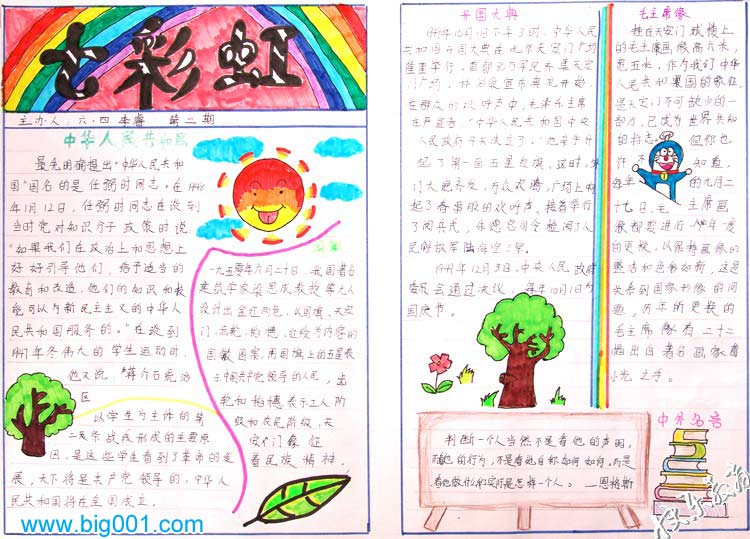 七彩虹
主办人：六.四 李睿 第二期
中华人民共和国
最先明确提出"中华人民共和
国"国名的是任弼时同志。在1948
年1月12日，任弼时同志在谈到
当时党对知识分子政策时说：
"如果我们在政治上和思想上
好好引导他们，给予适当的
教育和改造，他们的知识和技
能可以为新民主主义的中华人
民共和国服务的。"在谈到
1947年冬伟大的学生运动时，
他又说："蒋介石统治
区
以学生为主体的第
二条战线形成的主要原
因，是这些学生看到了革命的发
展，天下将是共产党领导的，中华人
民共和国将在全国成立。
一九五零年六月二十日，我国著名
建筑学家梁思成教授等九人
设计出金红两色，以国旗、天安
门、齿轮、稻穗、红绶为内容的
国徽图案，用国旗上的五星表
示中国共产党领导的人民，齿
轮和稻穗表示工人阶
级和农民阶级，天
安门象征
着民族精神。
www.big001.com
开国大典
1949年10月1日下午3时，中华人
民共和国开国大典在北京天安门广场
隆重举行。首都30万军民齐集天安
门广场，林伯渠宣布典礼开始，
在群众的欢呼声中，毛泽东主席
庄严宣告："中华人民共和国中央
人民政府今天成立了。"他亲手升
起了第一面五星红旗。这时，
门大炮齐发，万众欢腾，广场上响
起了春雷般的欢呼声。接着举行
了阅兵式，朱德总司令检阅了人
民解放军陆海空三军。
1949年12月3日，中央人民政府
委员会通过决议，每年10月1日为
国庆节。
毛主席像
挂在天安门城楼上
的毛主席画像高六米，
宽五米，作为我们中华
人民共和国的象征，
是天安门不可缺少的一
部分，已成为世界共知
的标志。但你也
许不知道，
每年的九月二
十九日，毛主席画
像都要进行一年一度
的更换，以保持画像的
整洁和色彩如新，这是
关系到国家形像的问
题。历年所更换的
毛主席像有二十二
幅出自著名画家葛
小光之手。
中外名言
判断一个人当然不是看他的声明，
而是他的行为，不是看他自称如何如何，而是
看他做什么和实际是怎样一个人。——恩格斯